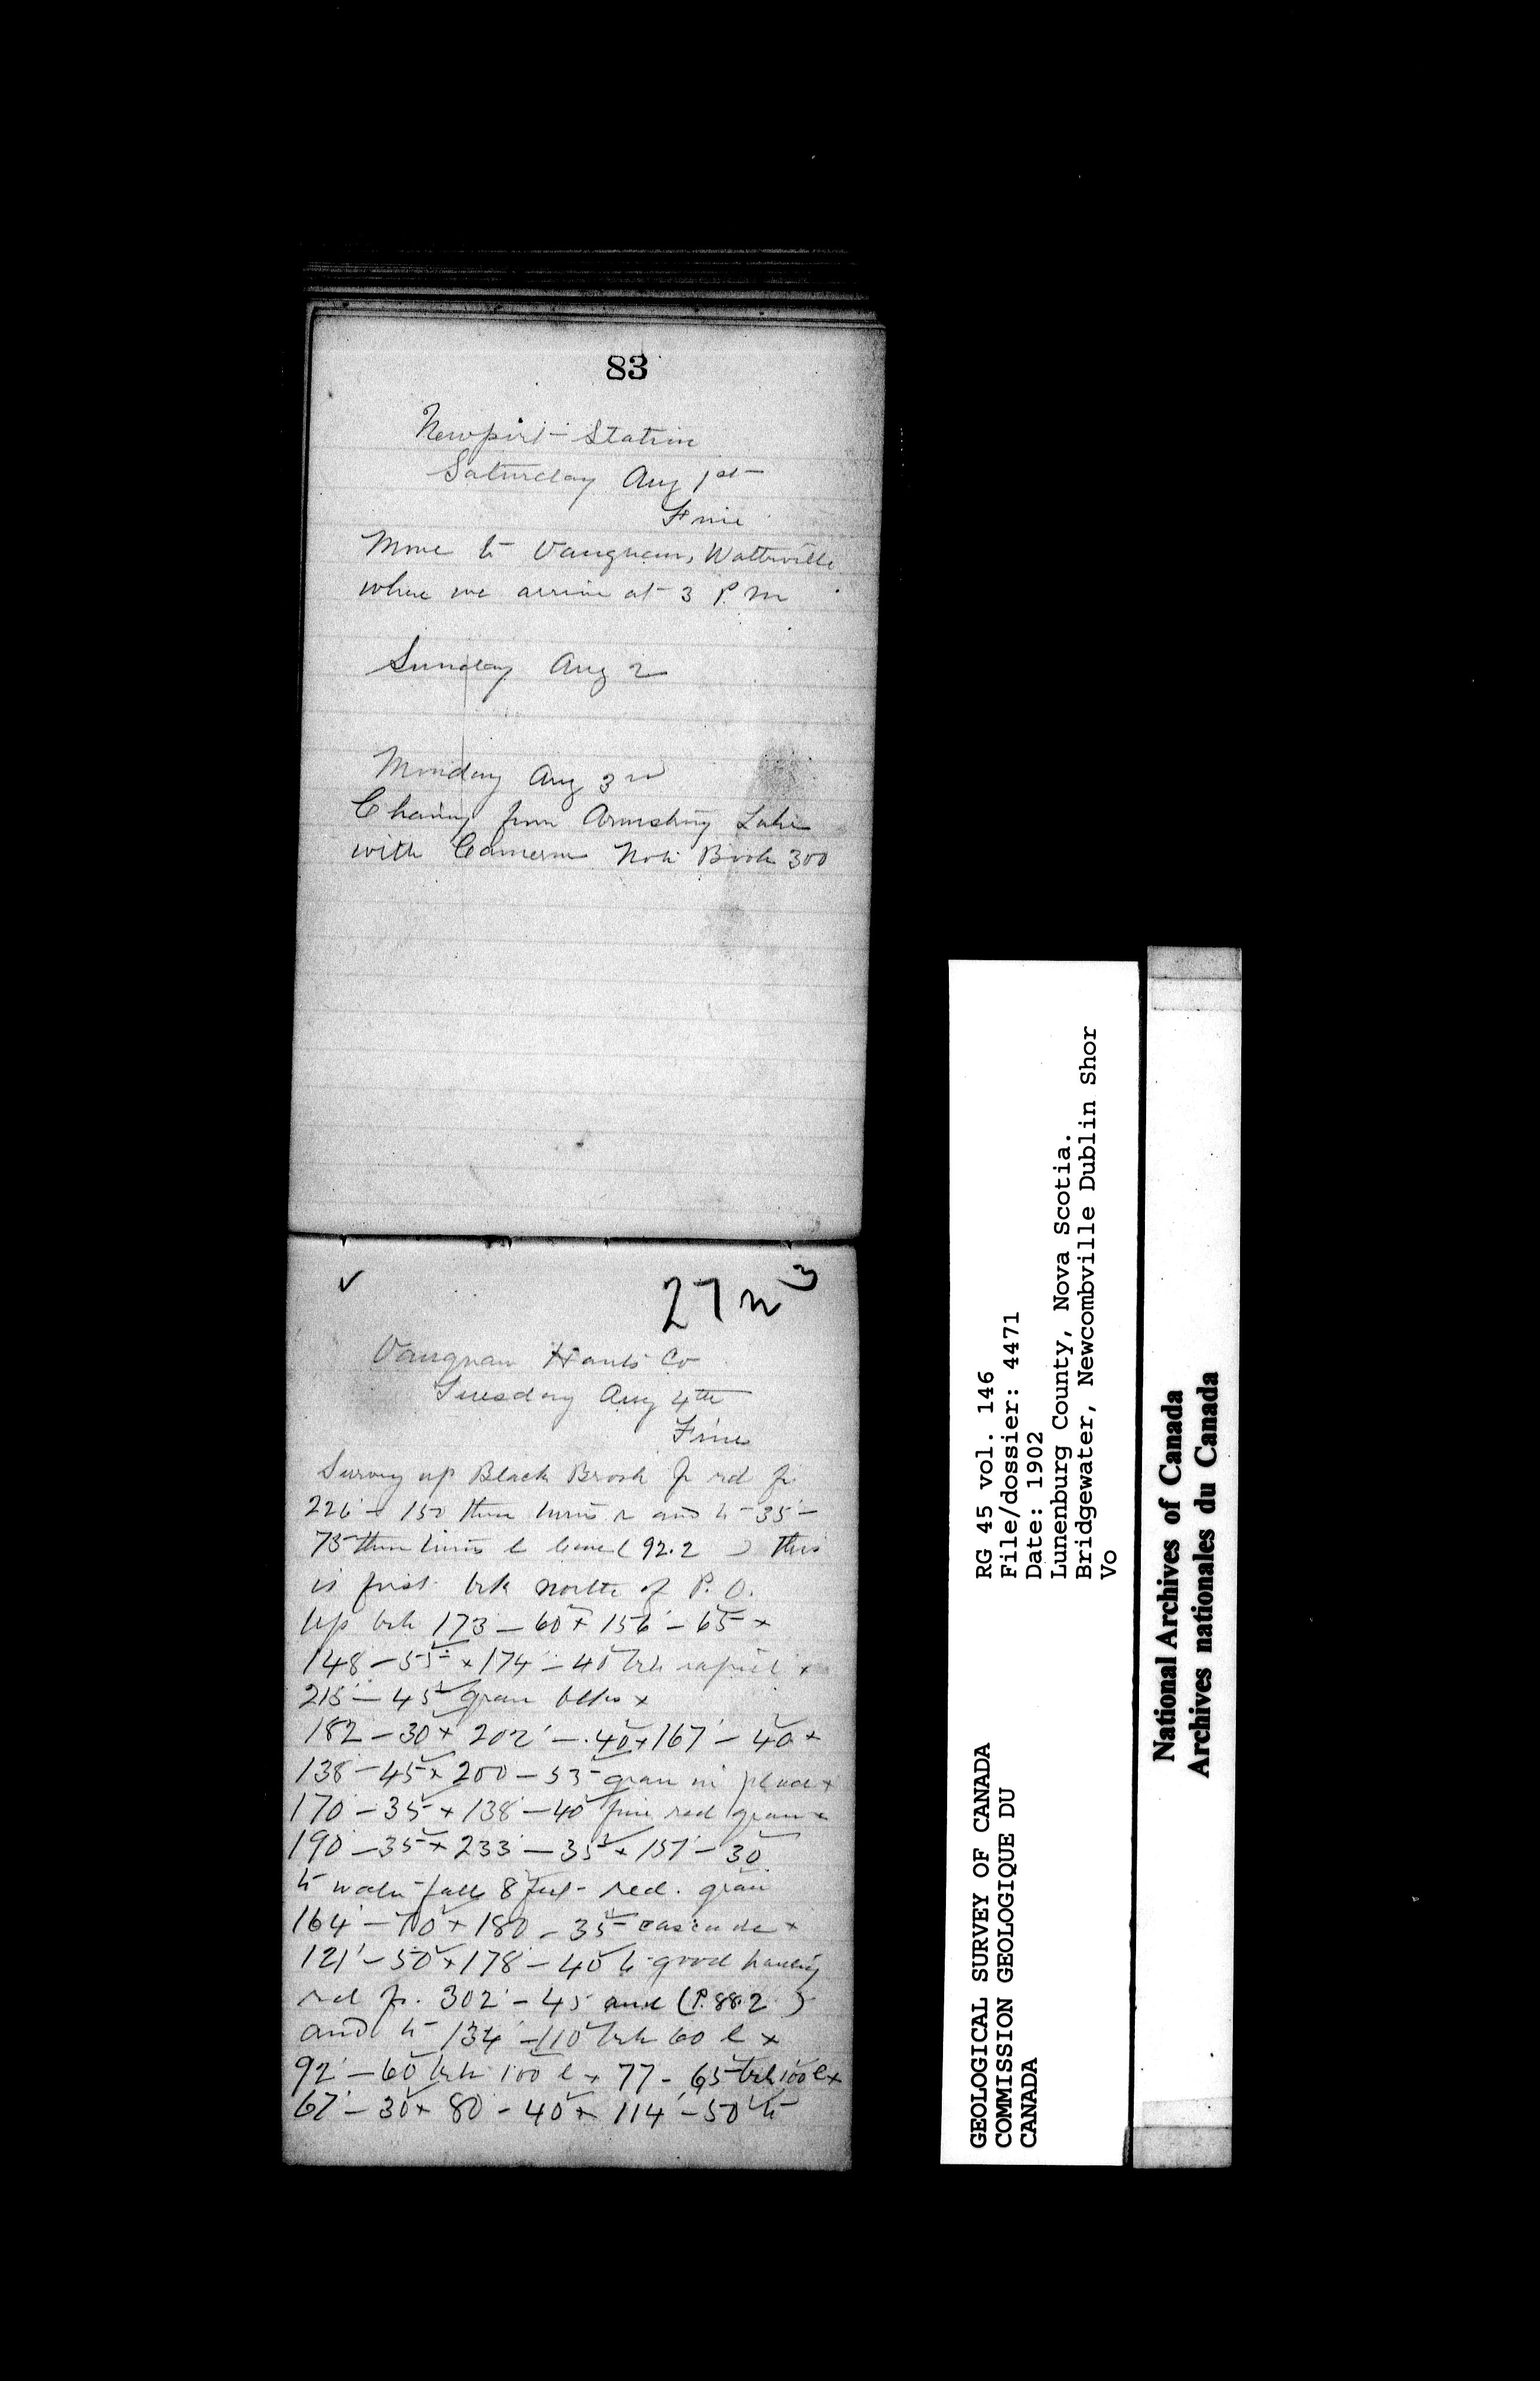 83
Newport Station
Saturday Aug 1st
Fine
Move to Vaughan, Watterville
where we arrive at 3 P.M
Sunday Aug 2
Monday Aug 3rd
Chaining from Armstrong Lake
with Cameron Note Book 300
27 n 3
Vaughan Hants Co
Tuesday Aug 4th
Fine
Survey up Black Brook fr rd fr
226 - 150 then turns r and to 35 -
75 then turns l (92.2 ) this
is first brk north of P.O.
Up brk 173 - 60 x 156 - 65 x
148 - 55 x 174 - 40 brk rapid x
215 - 45 gran blks x
182 - 30 x 202 - 40 x 167 - 40 x
138 - 45 x 200 - 55 gran in place x
170 - 35 x 138 - 40 fine red gran x
190 - 35 x 233 - 35 x 157 - 30
to water fall 8 feet red. gran
164 - 70 x 180 - 35 cascade x
121 - 50 x 178 - 40 to good hauling
rd fr. 302 - 45 and (P.88.2 )
and to 134 - 110 brk 60 l x
92 - 60 brk 100 l x 77 - 65 brk 100 l x
67 - 30 x 80 - 40 x 114 - 50 to
GEOLOGICAL SURVEY OF CANADA
COMMISSION GEOLOGIQUE DU
CANADA
RG 45 vol. 146
File/dossier: 4471
Date: 1902
Lunenburg County, Nova Scotia.
Bridgewater, Newcombville Dublin Shor
Vo
National Archives of Canada
Archives nationales du Canada